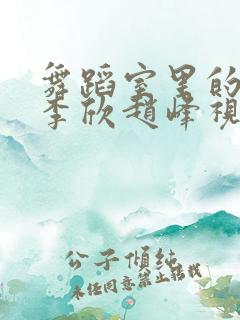 舞蹈室里的
李欣赵峰視
公子傾純
未经同意禁止转载